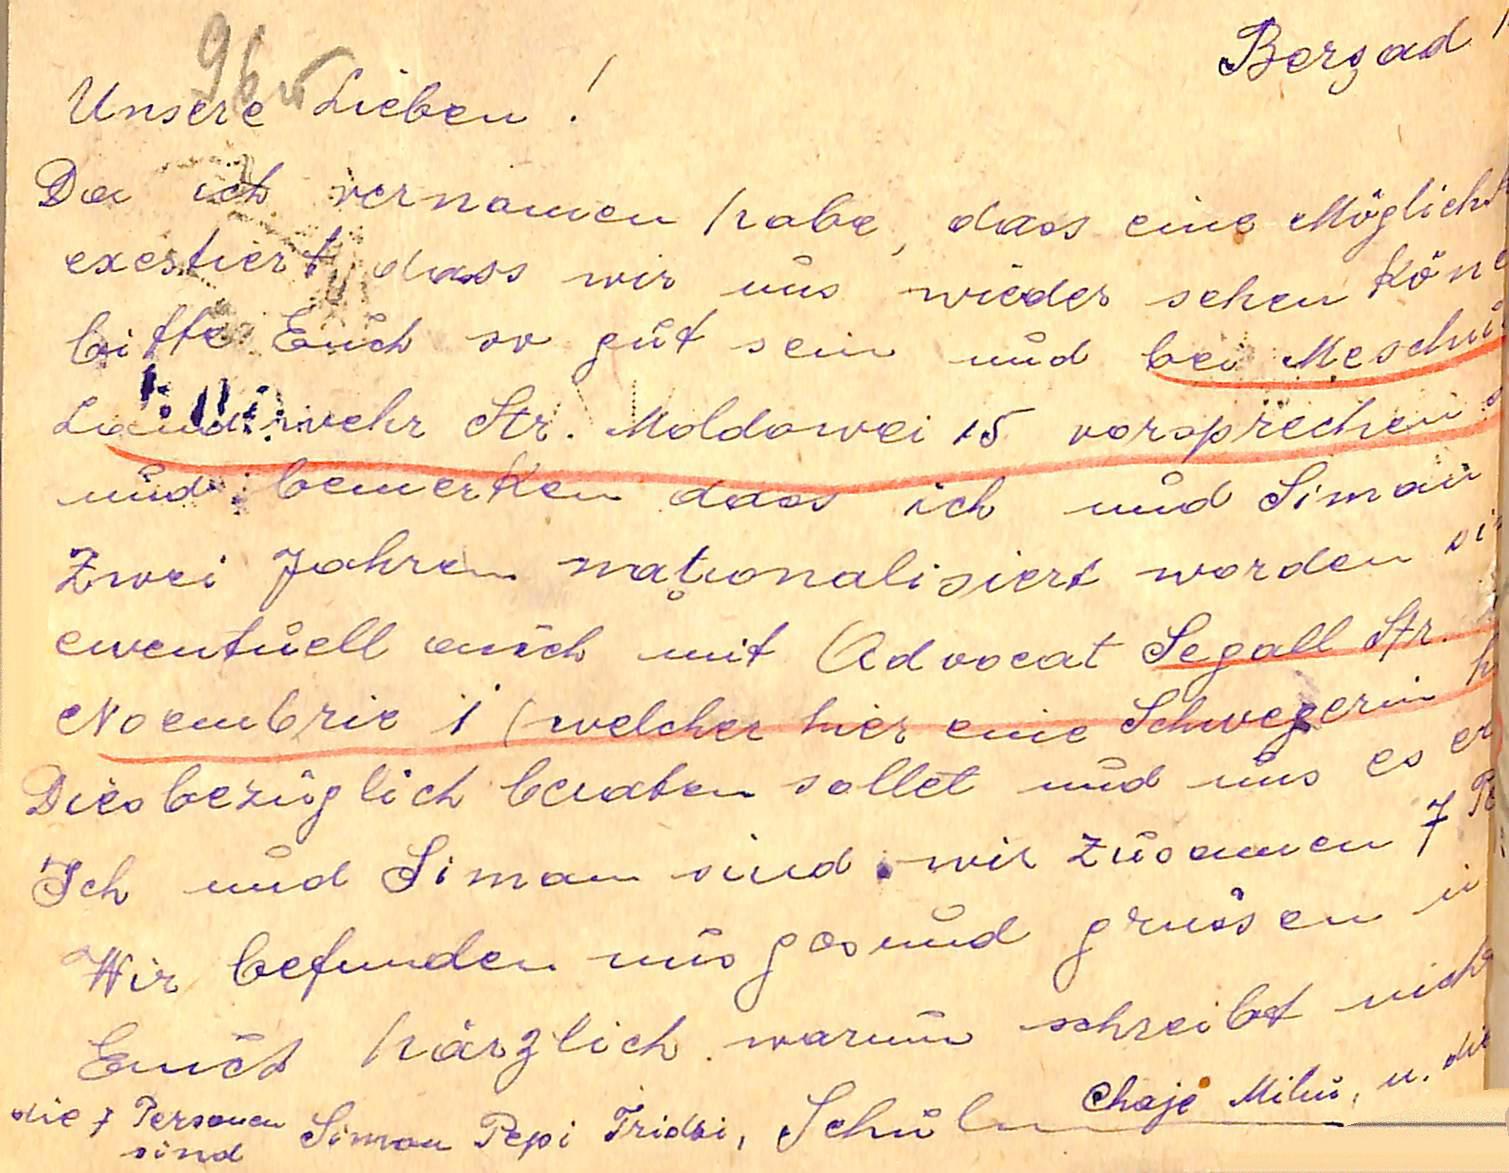 96
Berşad
Unsere Lieben!
Da ich vernomen habe, dass eine Möglich
exestiert dass wir uns wieder sehen Köne
bitte Euch so gut sein und bei Meschu
Landwehr Str. Moldowei 15 vorsprechen
und bemerken dass ich und Siman
Zwei Jahren naţionalisiert worden si
eventuell auch mit (Advocat Segall Str.
Noembrie 1 (welcher hier eine Schwegerin h
Diesbezüglich beraten sollet und uns es er
Ich und Siman sind wir Zusamen 7 Pe
Wir befunden uns gesund grüssen
Euch härzlich warum schreibt nich
die 7 Personen Chaje Milu, u. die
sind Simon Pepi Fridzi,